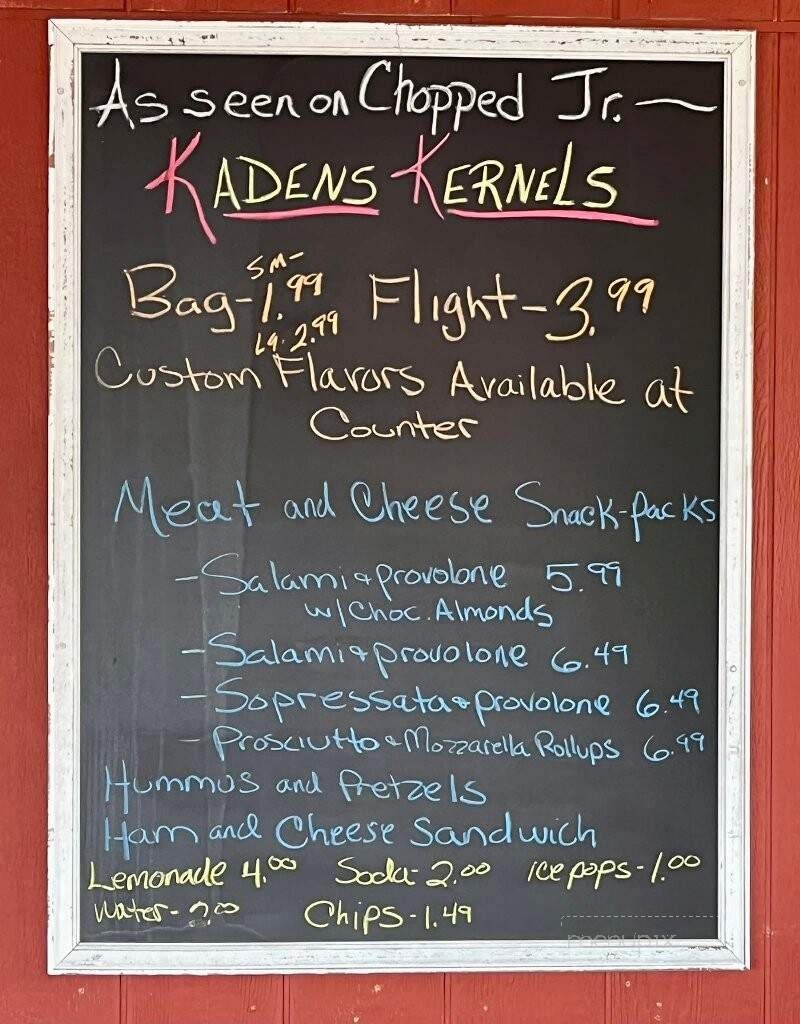 As seen on Chopped Jr. —
KADENS KERNELS
SM-
Bag-1.99 Flight-3.99
Lg. 2.99
Custom Flavors Available at
Counter
Meat and Cheese Snack-packs
-Salami & provolone 5.99
w/Choc. Almonds
-Salami & provolone 6.49
-Sopressata & provolone 6.49
-Prosciutto & Mozzarella Rollups 6.99
Hummus and Pretzels
Ham and Cheese Sandwich
Lemonade 4.00 Soda-2.00 ice pops-1.00
Water- Chips-1.49
menupix